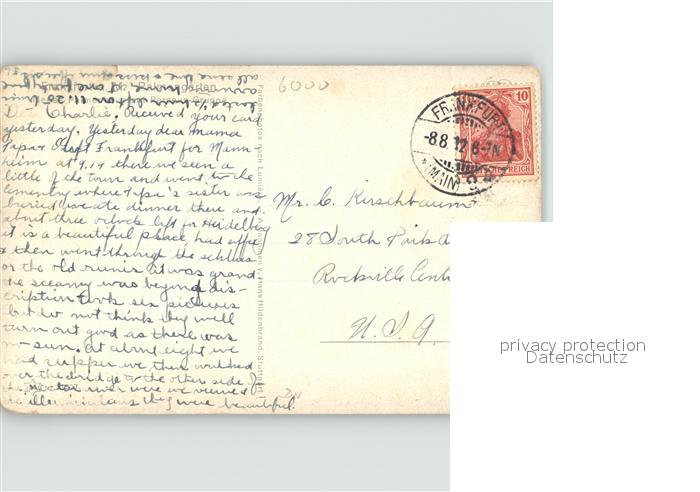 Charlie. Received your card
yesterday. Yesterday dear mama
Papa & I left Frankfurt for Mann-
heim at 9.14 there we seen a
little of the town and went to the
cementry where Papa's sister was
buried we ate dinner there and
about three oclock left for Heidelberg
it is a beautiful place, had coffee
& then went through the schloss
or the old ruins it was grand
the sceamy was beyond dis-
cription took six pictures
but do not think they will
turn out good as there was
no sun. at about eight we
had supper we then walked
over the bridge to the other side of
the river were we viewed
the illuminations they were beautiful.
6000
Hans Hildenbrand, Stuttgart
Mr. C. Kirschbaum
28 South Park A
Rockville Cent
U. S. A.
FRANKFURT
-8.8.12.6-7N
(MAIN)
10
REICH
privacy protection
Datenschutz